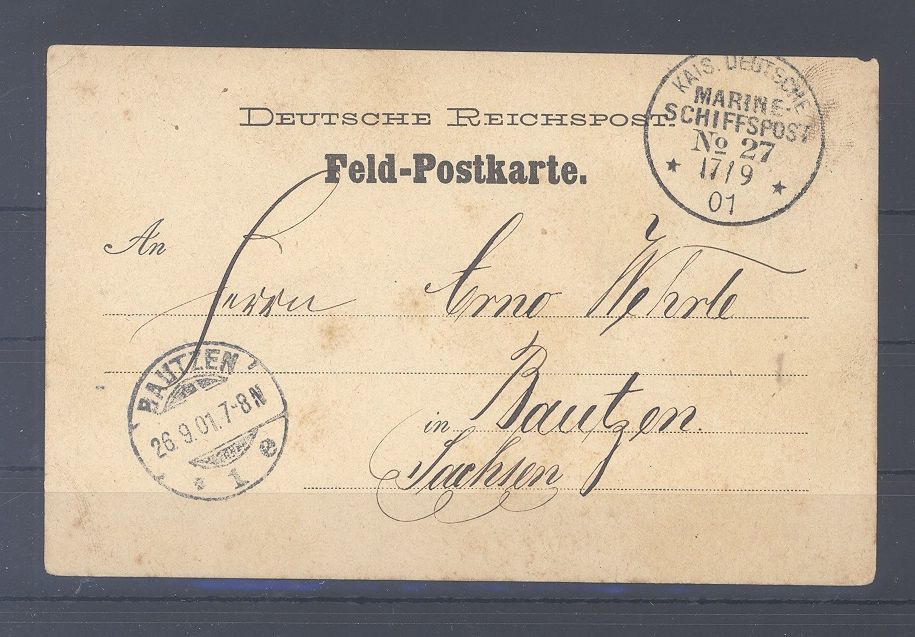 DEUTSCHE REICHSPOST.
Feld-Postkarte.
KAIS. DEUTSCHE
MARINE-
SCHIFFSPOST
No 27
17/9
01
An
Herrn Arno Wehrle
in Bautzen.
Sachsen
BAUTZEN
26.9.01.7-8N
* 1 e